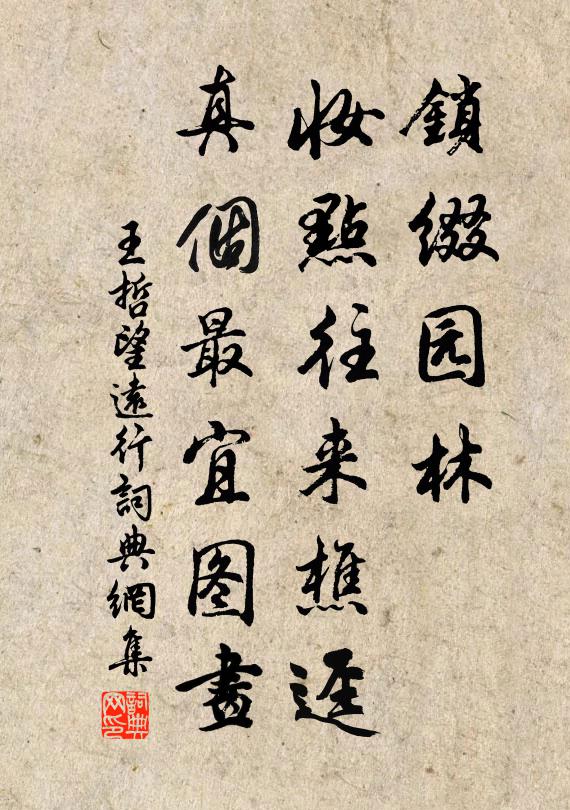 鎖綴园林
妝點往来樵逕
真個最宜图畫
王哲望遠行詞典網集
詞典网印